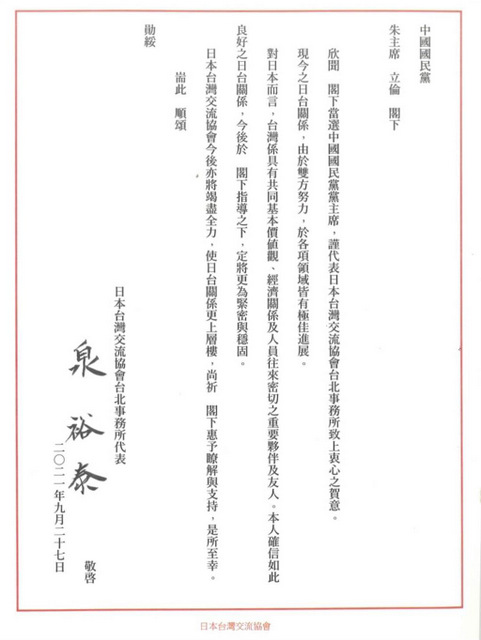 中國國民黨
朱主席　立倫　閣下
欣聞　閣下當選中國國民黨黨主席，謹代表日本台灣交流協會台北事務所致上衷心之賀意。
現今之日台關係，由於雙方努力，於各項領域皆有極佳進展。
對日本而言，台灣係具有共同基本價值觀、經濟關係及人員往來密切之重要夥伴及友人。本人確信如此
良好之日台關係，今後於　閣下指導之下，定將更為緊密與穩固。
日本台灣交流協會今後亦將竭盡全力，使日台關係更上層樓，尚祈　閣下惠予瞭解與支持，是所至幸。
耑此　順頌
勛綏
日本台灣交流協會台北事務所代表
泉　裕泰
敬啓
二〇二一年九月二十七日
日本台灣交流協會